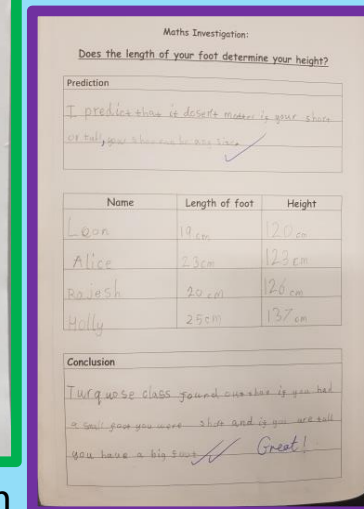 Maths Investigation:
Does the length of your foot determine your height?
Prediction
I predict that it doesn't matter if your short
or tall, your
Name Length of foot Height
Leon 19 cm 120 cm
Alice 23cm 123 cm
Rajesh 20 cm 126 cm
Holly 25cm 137 cm
Conclusion
Turquose class found out that if you had
a small you were short and if you are tall
you have a big
Great!